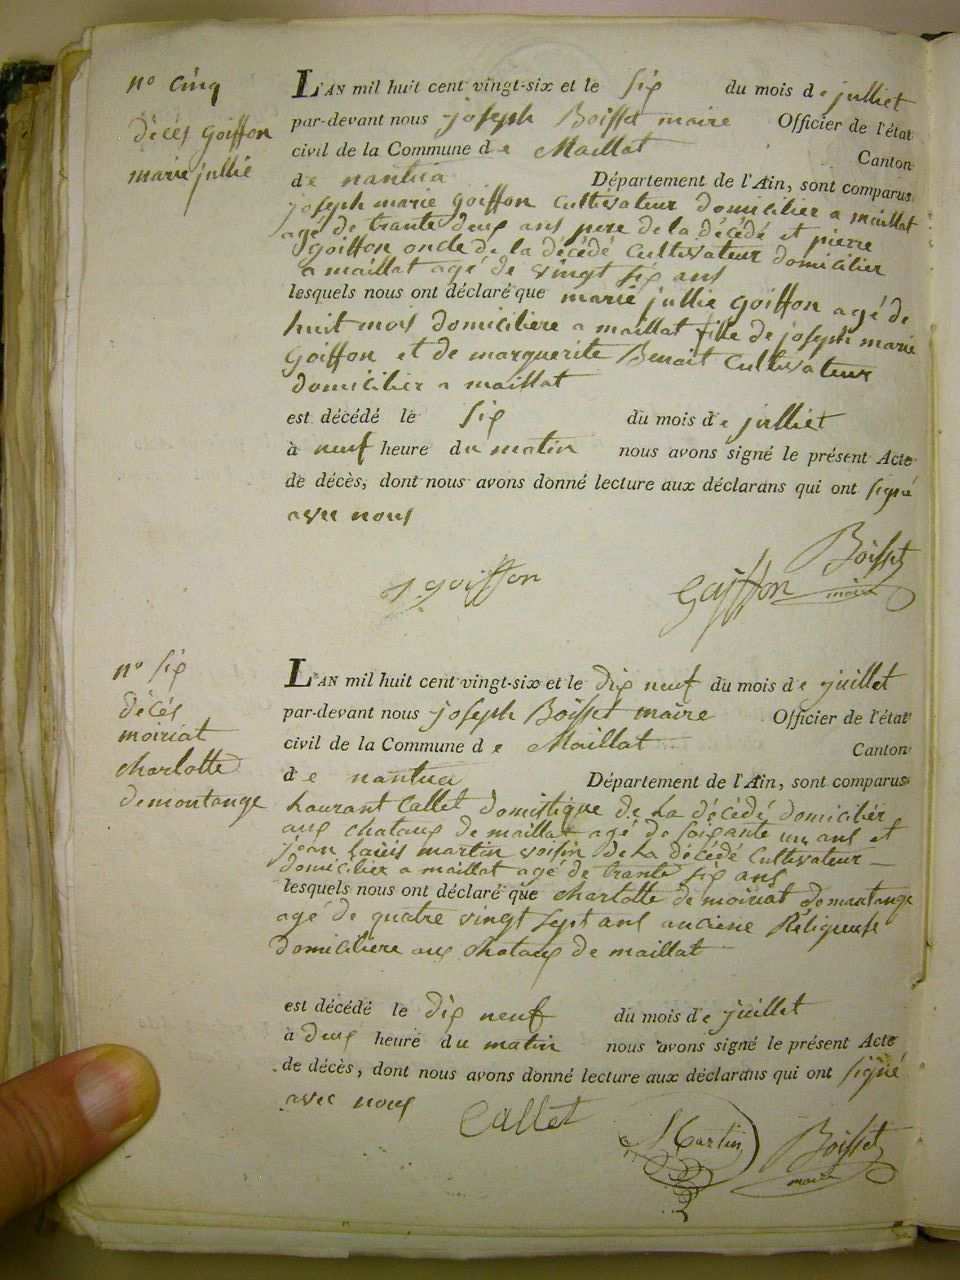 n° cinq
décès goiffon
marie jullie
L'AN mil huit cent vingt-six et le six du mois de julliet
par-devant nous joseph Boisset maire Officier de l'état
civil de la Commune de Maillat Canton
de nantua Département de l'Ain, sont comparus
joseph marie goiffon cultivateur domicilier a maillat
agé de trante deux ans pere de la décédé et pierre
goiffon oncle de la décédé cultivateur domicilier
a maillat agé de vingt six ans
lesquels nous ont déclaré que marie jullie goiffon agé de
huit mois domiciliere a maillat fille de joseph marie
goiffon et de marguerite Benoit cultivateur
domicilier a maillat
est décédé le six du mois de julliet
à neuf heure du matin nous avons signé le présent Acte
de décès, dont nous avons donné lecture aux déclarans qui ont signé
avec nous
goiffon goiffon Boisset
maire
n° six
décés
moiriat
charlotte
demontange
L'AN mil huit cent vingt-six et le dix neuf du mois de juillet
par-devant nous joseph Boisset maire Officier de l'état
civil de la Commune de Maillat Canton
de nantua Département de l'Ain, sont comparus
Laurant Callet domistique de La décédé domicilier
aux chataux de maillat agé de soixante un ans et
jean Louis martin voisin de La décédé cultivateur
domicilier a maillat agé de trante six ans
lesquels nous ont déclaré que charlotte de moiriat demontange
agé de quatre vingt sept ans anciene Religieuse
domiciliere aux chataux de maillat
est décédé le dix neuf du mois de juillet
à deux heure du matin nous avons signé le présent Acte
de décès, dont nous avons donné lecture aux déclarans qui ont signé
avec nous Callet Martin Boisset
maire